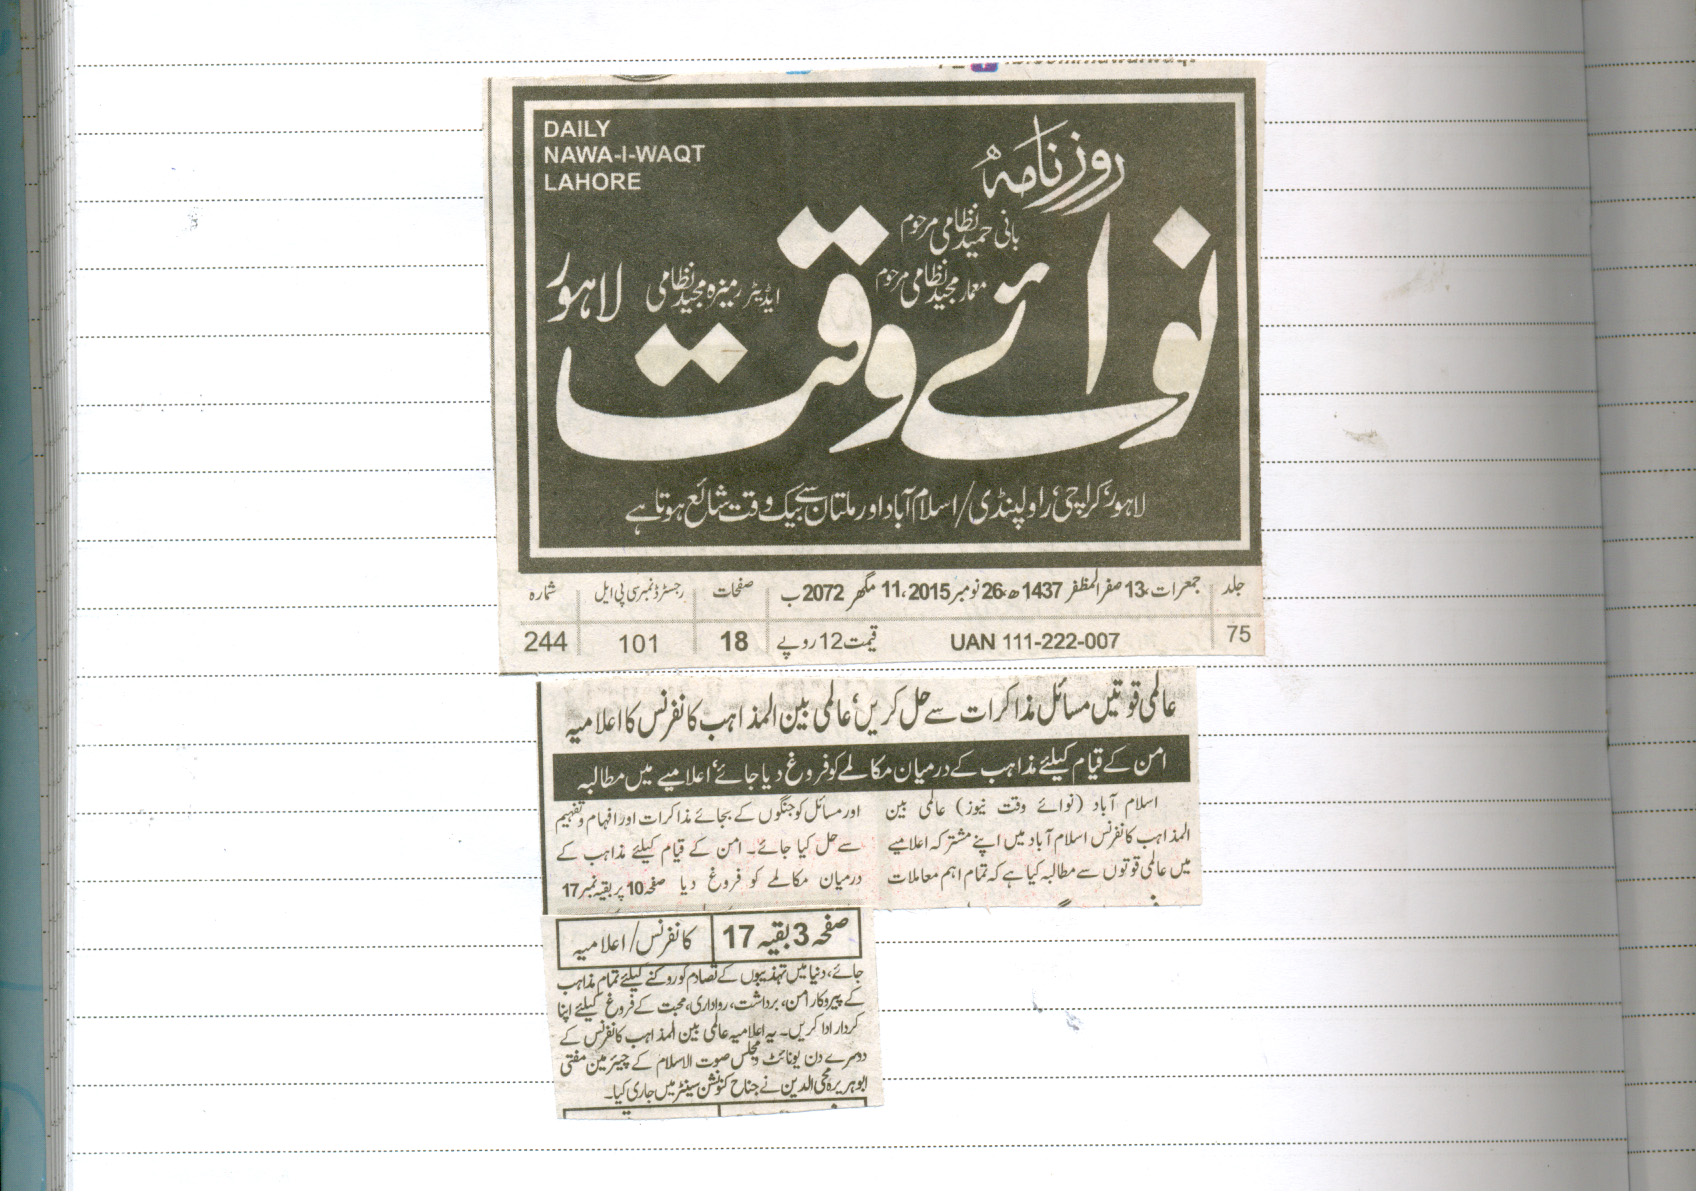 DAILY
NAWA-I-WAQT
LAHORE
روزنامہ
بانی حمید نظامی مرحوم
معمار مجید نظامی مرحوم
نوائے وقت
ایڈیٹر رمیزہ مجید نظامی
لاہور
لاہور، کراچی، راولپنڈی/اسلام آباد اور ملتان سے بیک وقت شائع ہوتا ہے
جلد
جمعرات، 13 صفر المظفر 1437ھ، 26 نومبر 2015، 11 مگھر 2072 ب
صفحات
رجسٹرڈ نمبر سی پی ایل
شمارہ
75
UAN 111-222-007
قیمت 12 روپے
18
101
244
عالمی قوتیں مسائل مذاکرات سے حل کریں، عالمی بین المذاہب کانفرنس کا اعلامیہ
امن کے قیام کیلئے مذاہب کے درمیان مکالمے کو فروغ دیا جائے، اعلامیے میں مطالبہ
اسلام آباد (نوائے وقت نیوز) عالمی بین
المذاہب کانفرنس اسلام آباد میں اپنے مشترکہ اعلامیے
میں عالمی قوتوں سے مطالبہ کیا ہے کہ تمام اہم معاملات
اور مسائل کو جنگوں کے بجائے مذاکرات اور افہام و تفہیم
سے حل کیا جائے۔ امن کے قیام کیلئے مذاہب کے
درمیان مکالمے کو فروغ دیا صفحہ 10 پر بقیہ نمبر 17
صفحہ 3 بقیہ 17
کانفرنس/اعلامیہ
جائے، دنیا میں تہذیبوں کے تصادم کو روکنے کیلئے تمام مذاہب
کے پیروکار امن، برداشت، رواداری، محبت کے فروغ کیلئے اپنا
کردار ادا کریں۔ یہ اعلامیہ عالمی بین المذاہب کانفرنس کے
دوسرے دن یونائٹ و مجلس صوت الاسلام کے چیئرمین مفتی
ابوہریرہ محی الدین نے جناح کنونشن سینٹر میں جاری کیا۔